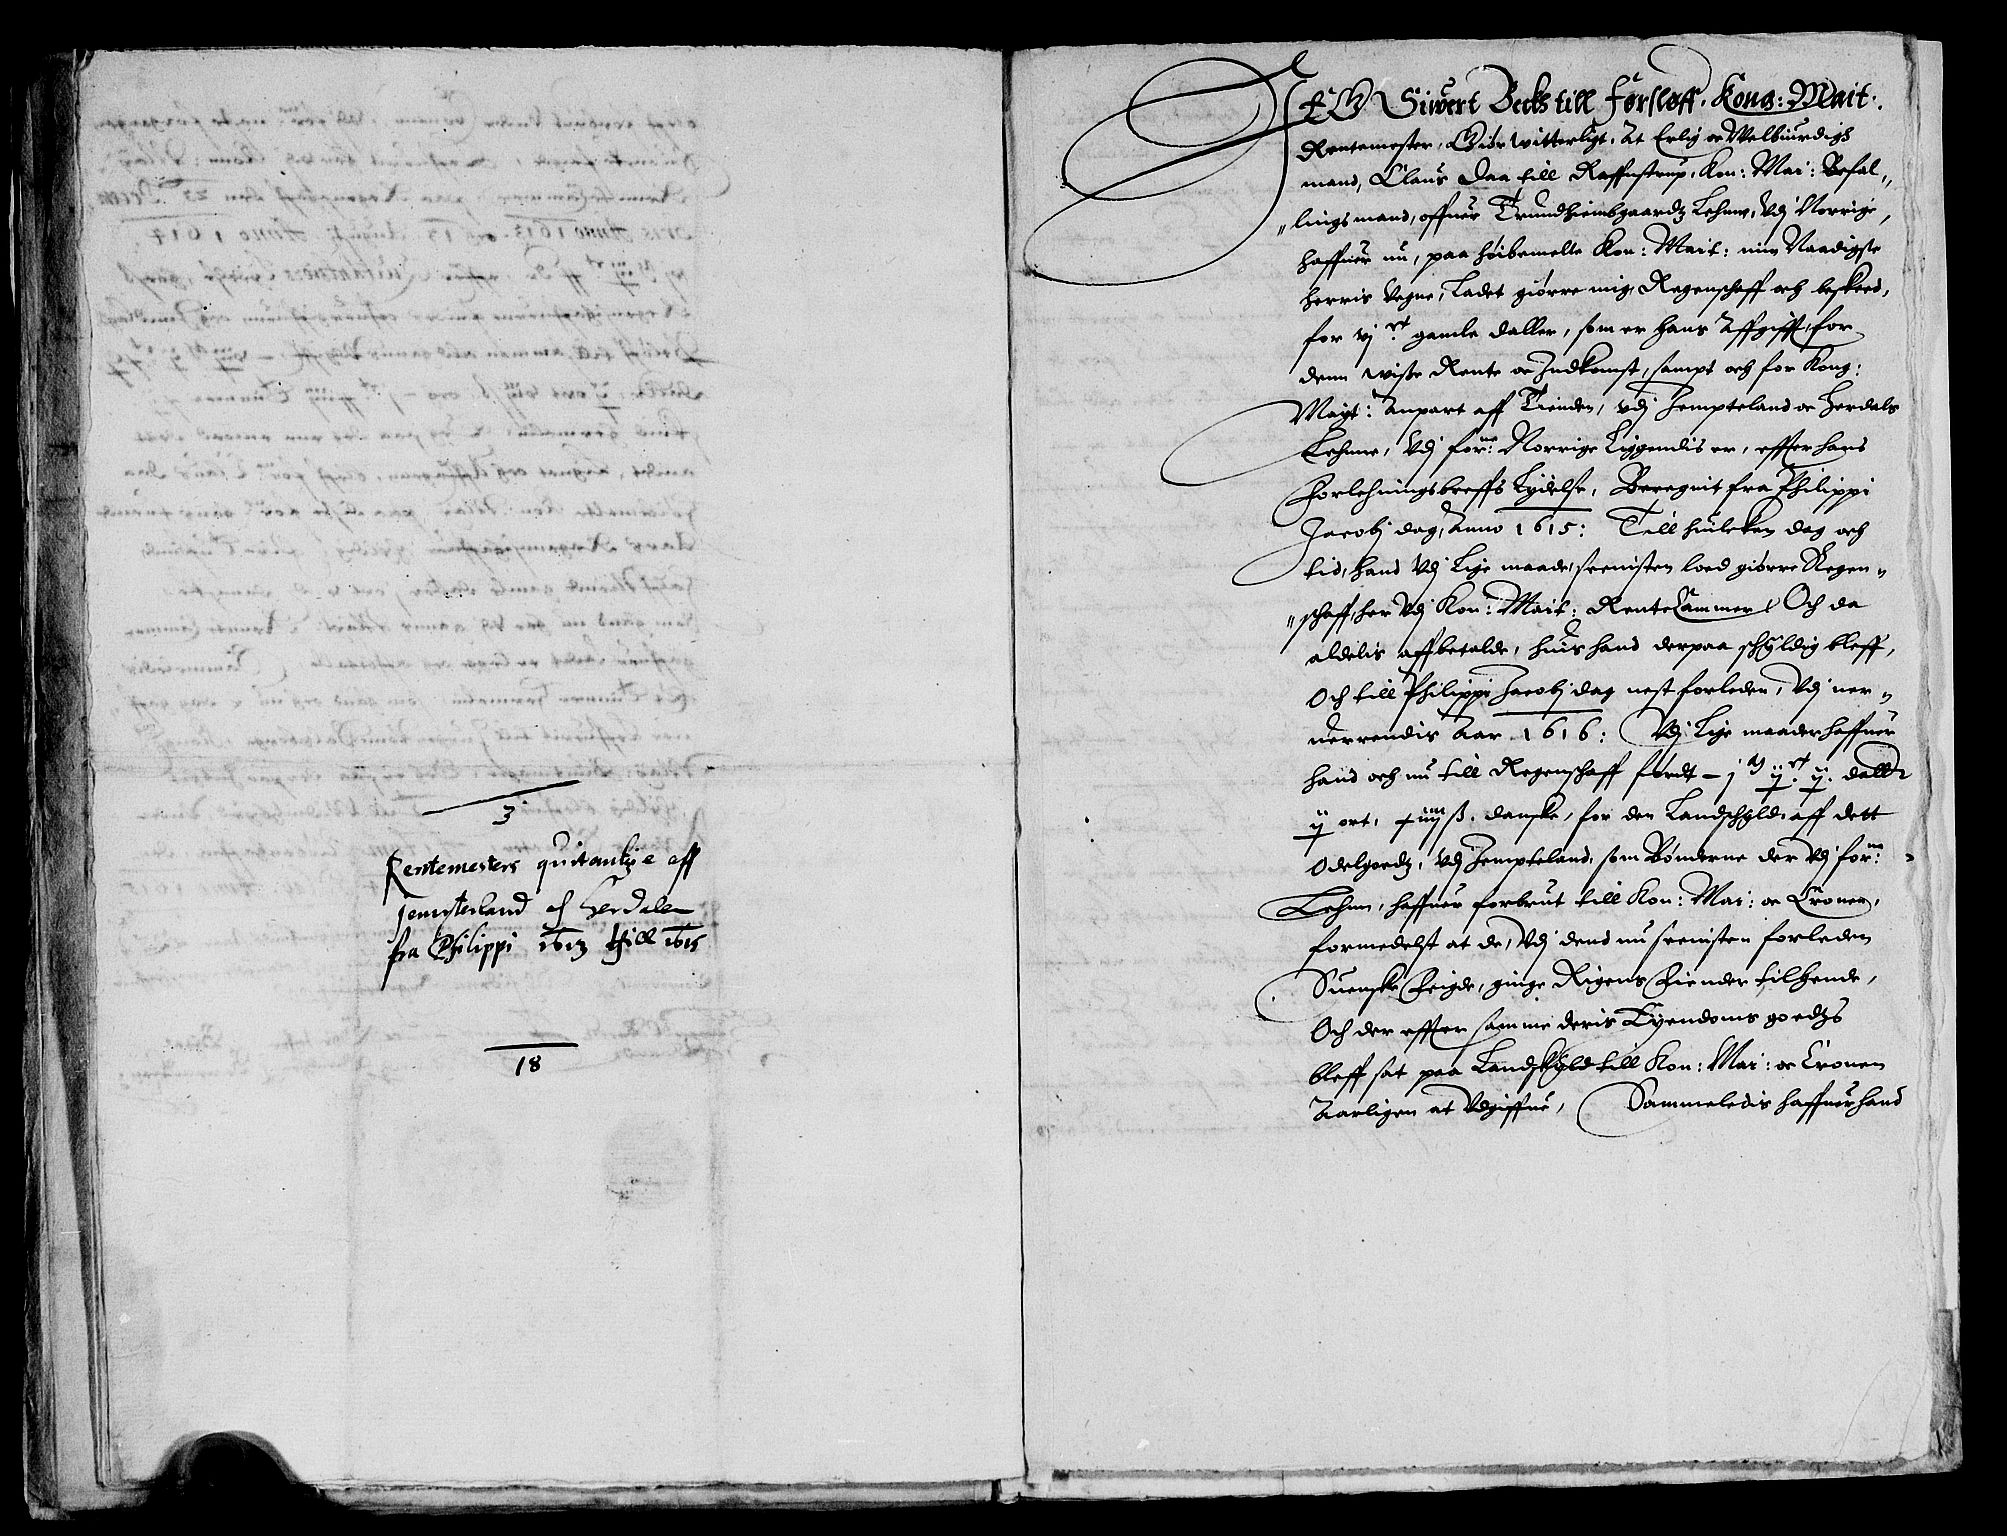 3
Rentemesters quitantzie aff
Jempterland och Herdalen
fra Philippi 1613 till 1615
18
JEG Siwert Beck till Førsløff, Kong: Mait:
Rentemester, Giør witterligt, At Erlig oc Welbiurdigh
mand, Claus Daa till Raffnstrup, Kon: Mai: Befal„
„lings mand, offuer Trundhiembgaardtz Lehnn, Vdj Norrige,
haffuer nu, paa høibemelte Kon: Mait: min Naadigste
herris Vegne, Ladet giørre mig, Regenschaff och beskeed,
for vj ct gamle daller, som er hans Affgifft, for
denn wisse Rente oc Indkomst, sampt och for Kong:
Mayt: Anpart aff Tienden, vdj Jempteland oc Herdals
Lehnne, Vdj forne: Norrige Liggendis er, effter hans
Forlehningsbreffs Lydelse, Beregnit fra Philippi
Jacobj dag, Anno 1615: Till huilcken dag och
tid, hand Vdj Lige maade, seenisten loed giørre Regen„
„schaff, her Vdj Kon: Mait: RenteCammer, Och da
aldelis affbetalde, huis hand derpaa schyldig bleff,
Och till Philippi Jacobj dag nest forleden, Vdj ner„
uerrendis Aar 1616: Vdj Lige maader haffuer
hand och nu till Regenschaff førdt – j daller
ij ort, danske, for den Landschyld, aff dett
Odelgoedz, Vdj Jempteland, som Bønderne der Vdj forne:
Lehnn, haffuer forbrut till Kon: Mai: oc Cronen,
formedelst at de, Vdj dend nu seenisten forleden
Suenske Feigde, ginge Rigens Fiender tilhende,
Och der effter samme deris Eyendoms goedtzs
bleff sat paa Landskyld till Kon: Mai: oc Cronen
Aarligen at Vdgiffue, Sammeledis haffuer hand